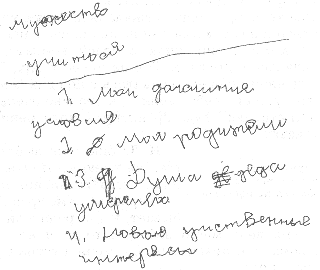 мужество
учиться
1. Мои домашние
условия
2. Мои родители
3. Душа деда
умерла
4. Новые умственные
интересы